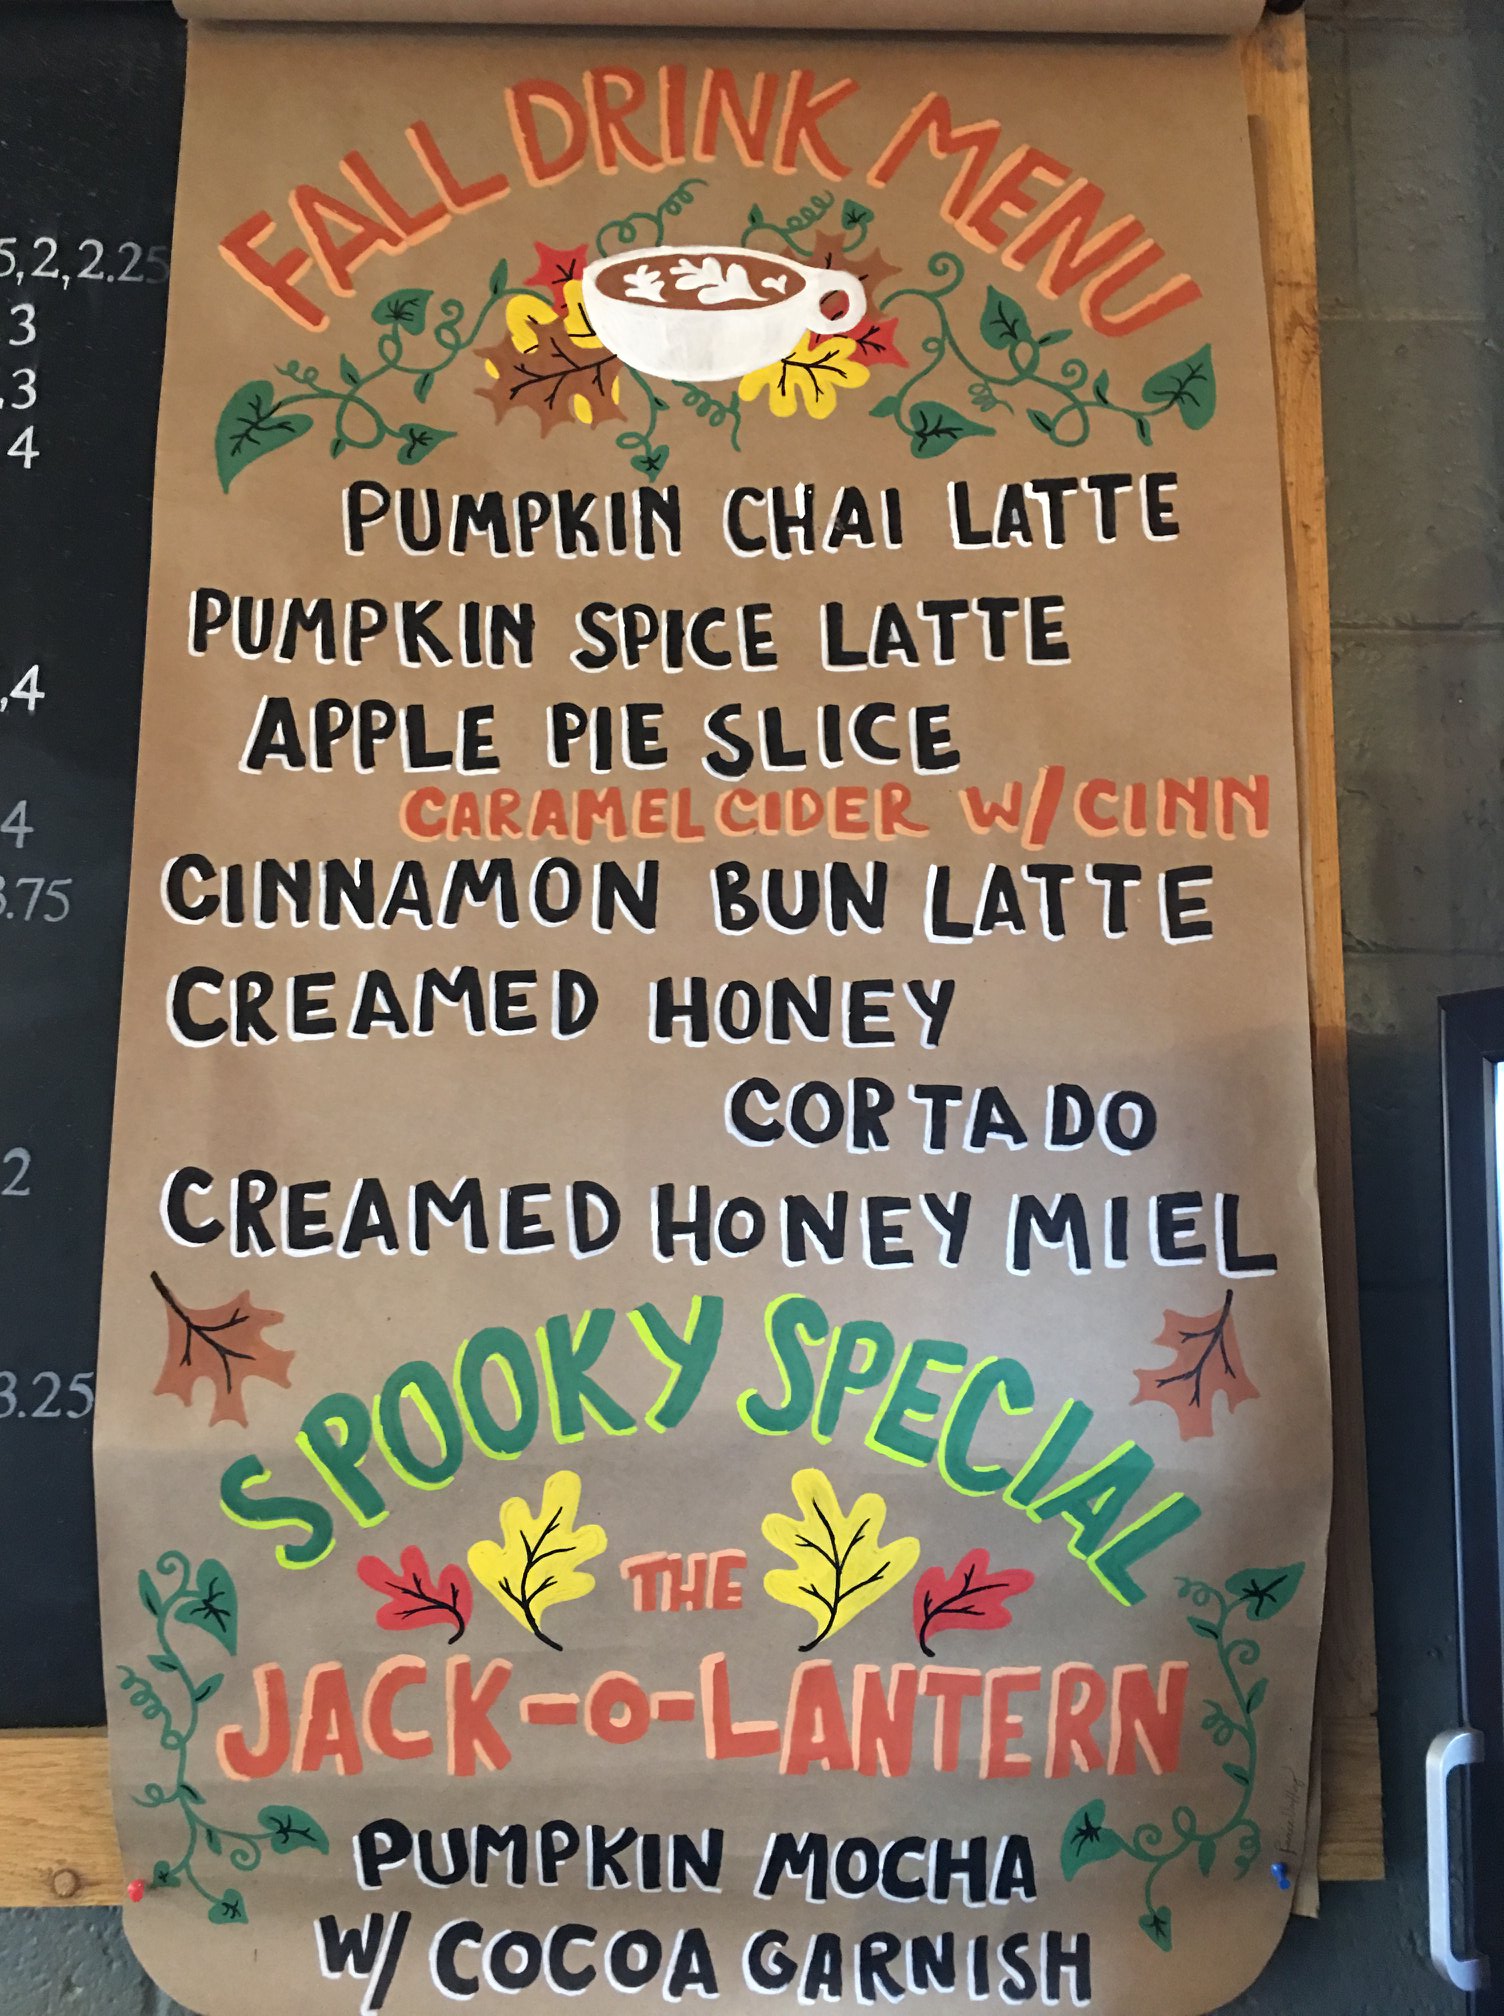 FALL DRINK MENU
PUMPKIN CHAI LATTE
PUMPKIN SPICE LATTE
APPLE PIE SLICE
CARAMEL CIDER W/CINN
CINNAMON BUN LATTE
CREAMED HONEY
CORTADO
CREAMED HONEY MIEL
SPOOKY SPECIAL
THE
JACK-O-LANTERN
PUMPKIN MOCHA
W/ COCOA GARNISH
5, 2, 2.25
3
.3
4
,4
4
3.75
2
3.25